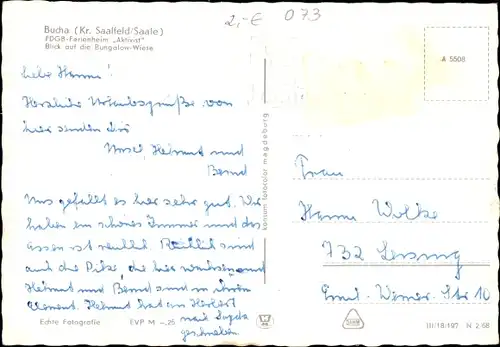 2,-€ 073
Bucha (Kr. Saalfeld/Saale)
FDGB-Ferienheim „Aktivist"
Blick auf die Bungalow-Wiese
A 5508
Liebe Hanna!
Herzliche Urlaubsgrüße von
hier senden Dir
Helmut und
Bernd
Uns gefällt es hier sehr gut. Wir
haben ein schönes Zimmer und das
Essen ist reichlich. sind
auch die Pilze, die hier wachsen und
Helmut und Bernd sind in ihrem
Element. Helmut hat an Herbert
nach
geschrieben
konsum fotocolor magdeburg
Frau
Hanna Wolke
732 Leisnig
Emil-Werner-Str 10
Echte Fotografie EVP M -.25
III/18/197 N 2/68